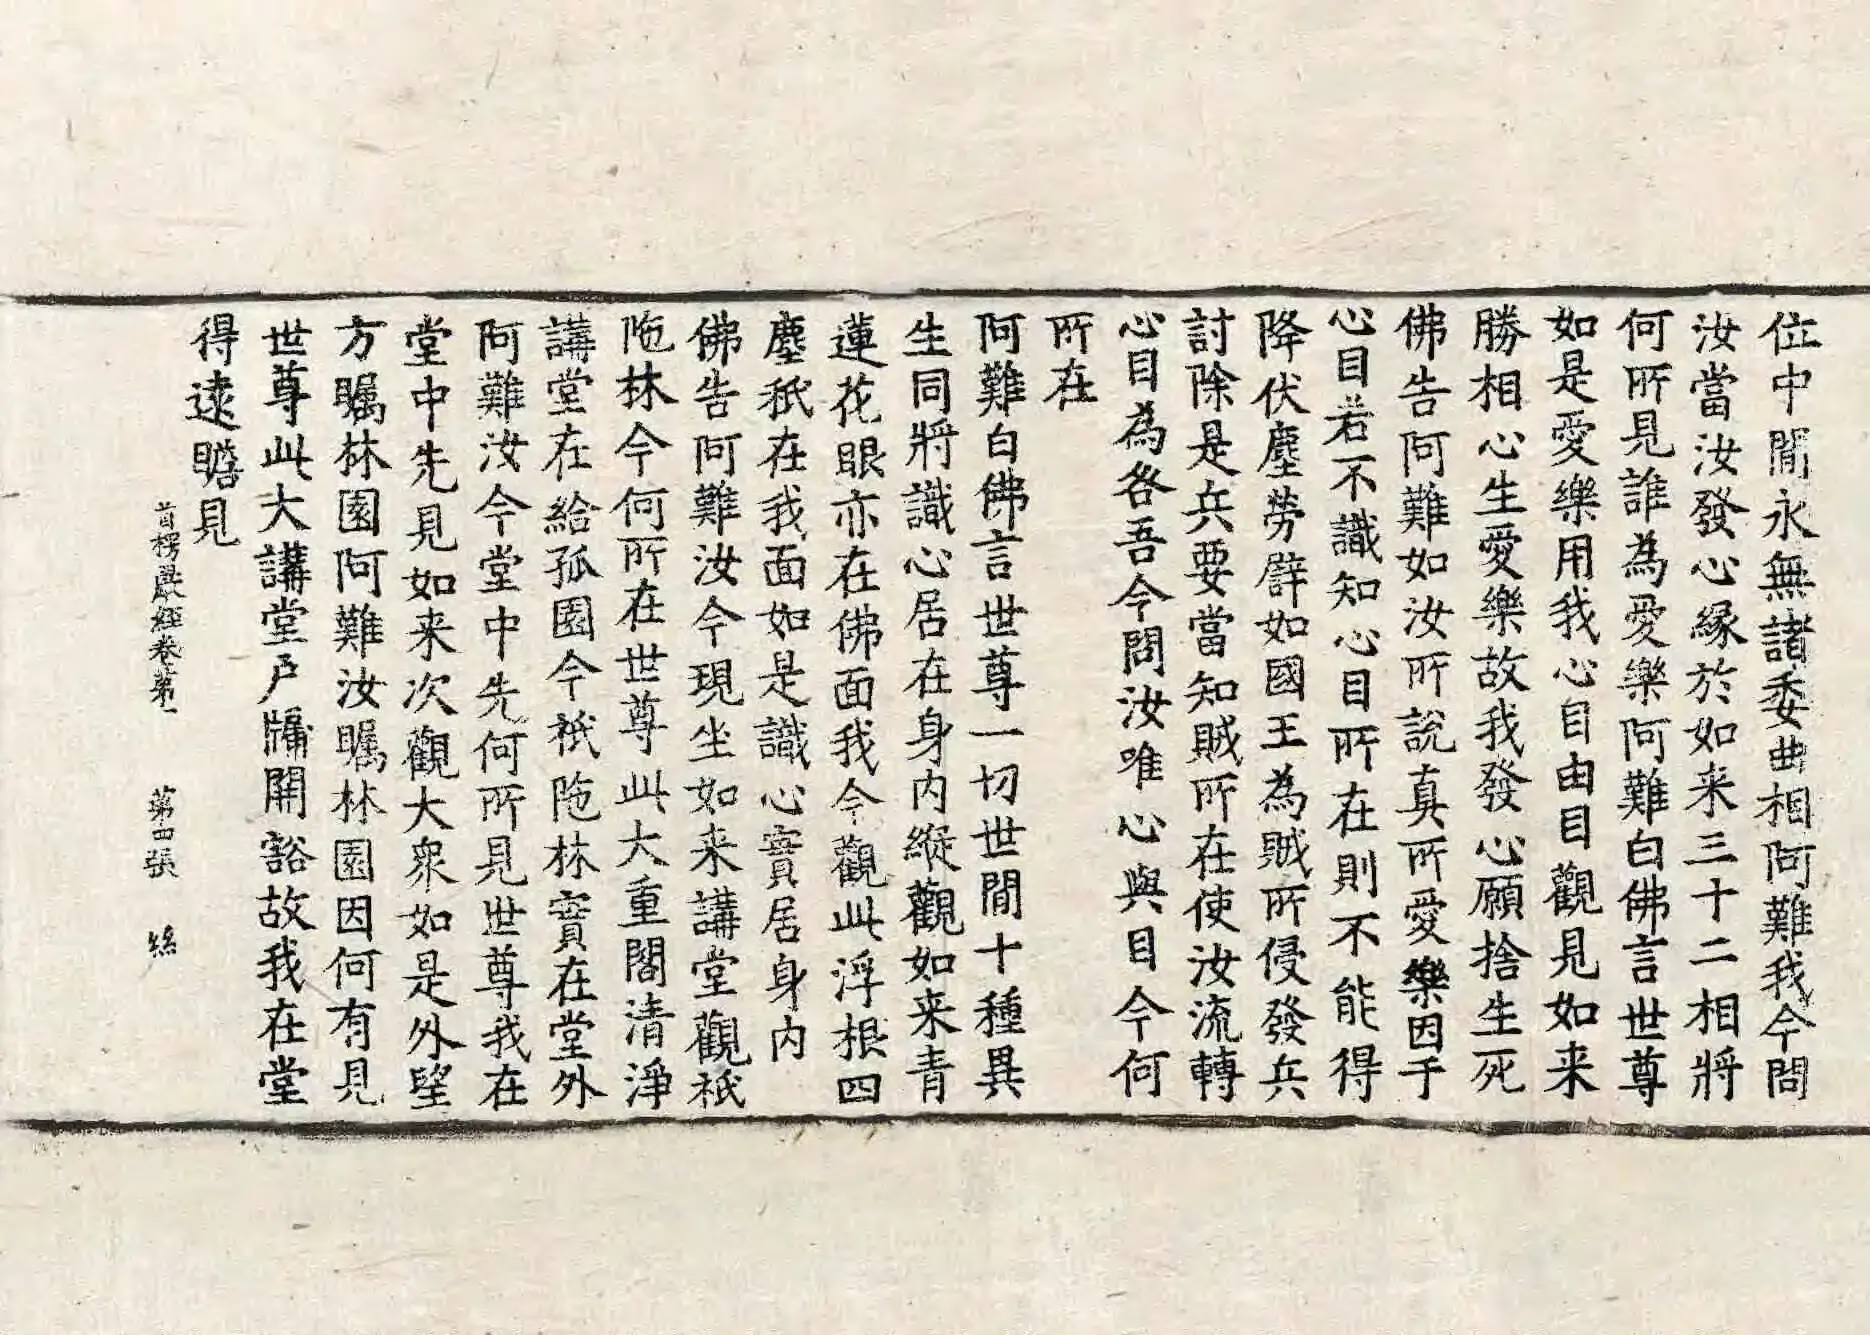 位中閒永無諸委曲相阿難我今問
汝當汝發心緣於如来三十二相將
何所見誰為愛樂阿難白佛言世尊
如是愛樂用我心目由目觀見如来
勝相心生愛樂故我發心願捨生死
佛告阿難如汝所說真所愛樂因于
心目若不識知心目所在則不能得
降伏塵勞譬如國王為賊所侵發兵
討除是兵要當知賊所在使汝流轉
心目為咎吾今問汝唯心與目今何
所在
阿難白佛言世尊一切世閒十種異
生同將識心居在身内縱觀如来青
蓮花眼亦在佛面我今觀此浮根四
塵秖在我面如是識心實居身内
佛告阿難汝今現坐如来講堂觀祇
陁林今何所在世尊此大重閣清淨
講堂在給孤園今祇陁林實在堂外
阿難汝今堂中先何所見世尊我在
堂中先見如来次觀大衆如是外望
方矚林園阿難汝矚林園因何有見
世尊此大講堂戶牖開豁故我在堂
得遠瞻見
首楞嚴經卷第一 第四張 絲